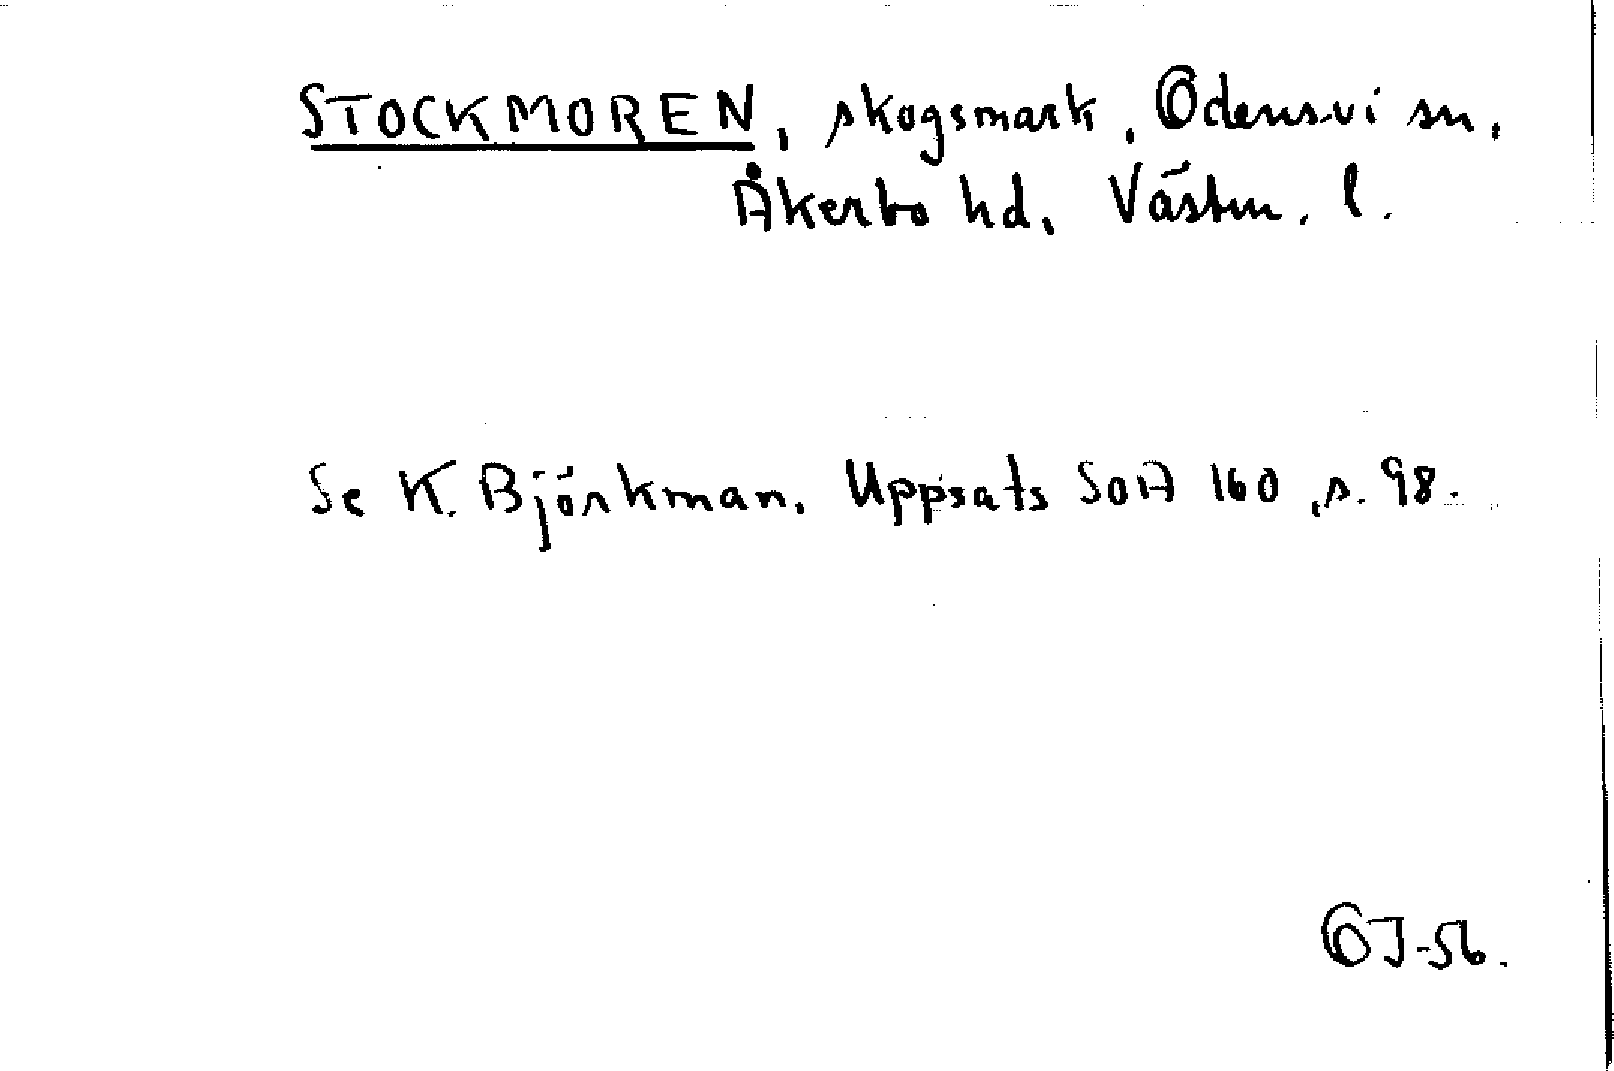 STOCKMOREN, skogsmark, Odensvi sn,
Åkerbo hd, Västm. l.
Se K. Björkman. Uppsats SOA 160, s. 98.
OJ-56.